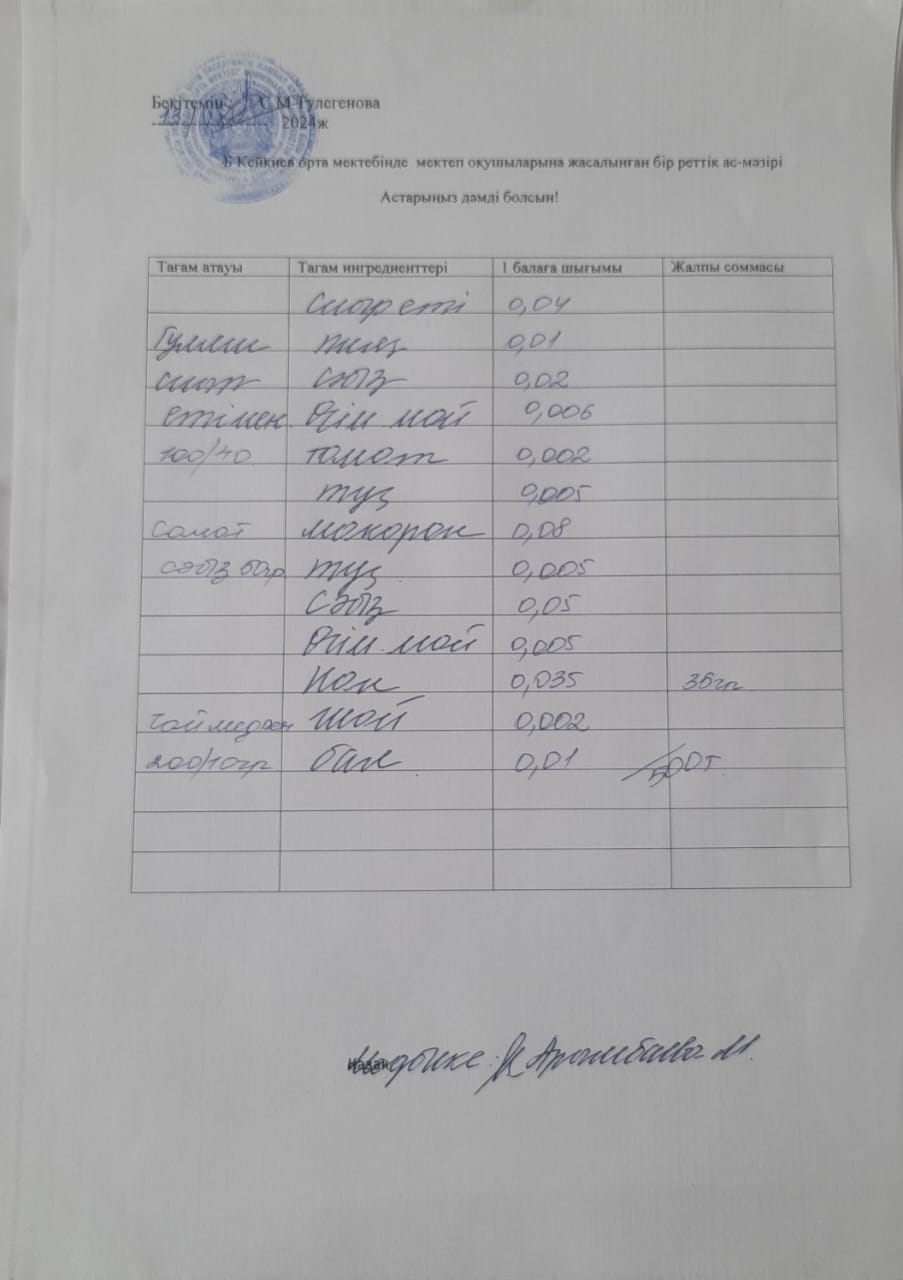 Бекітемін С М Тулегенова
2024ж
Б Кейкиев орта мектебінде мектеп оқушыларына жасалынған бір реттік ас-мәзірі
Астарыңыз дәмді болсын!
Тағам атауы Тағам ингредиенттері 1 балаға шығымы Жалпы соммасы
Сиыр еті 0,04
Гуляш пияз 0,01
сиыр сәбіз 0,02
етімен өсім май 0,006
100/40 томат 0,002
туз 0,005
Салат макарон 0,08
сәбіз 50гр туз 0,005
сәбіз 0,05
Өсім май 0,005
Нан 0,035 35гр
шай 0,002
200/10гр бал 0,01